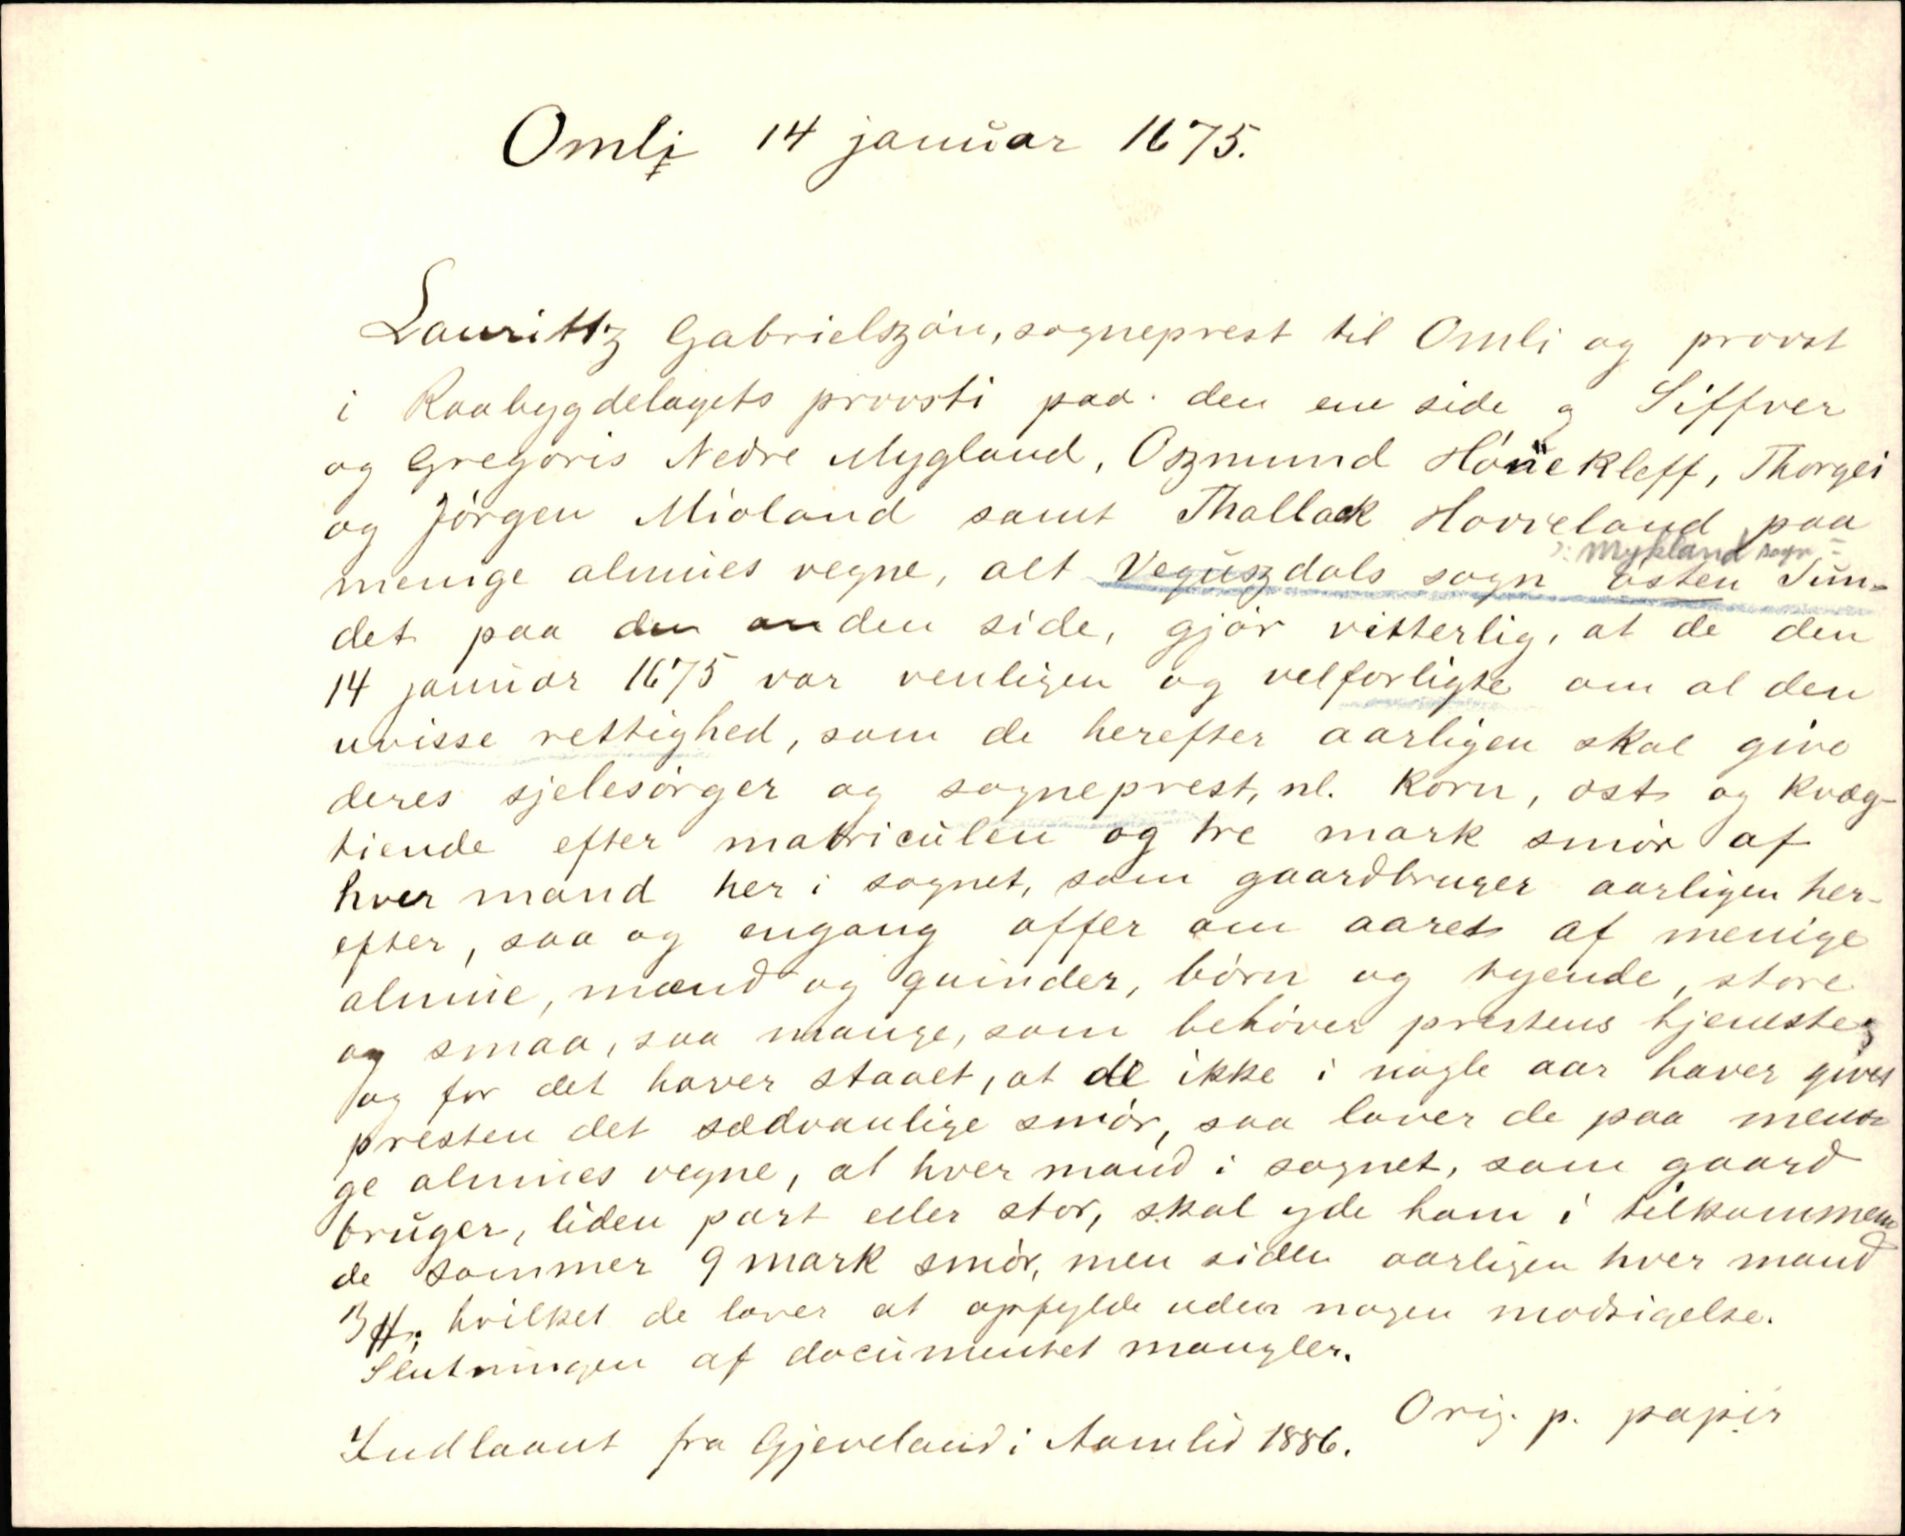 Omli 14 januar 1675.
Laurittz Gabrielszøn, sogneprest til Omli og provst
i Raabygdelagets provsti paa den ene side og Siffver
og Gregoris Nedre Mygland, Oszmund Hönekleff, Thorgei
og Jörgen Mioland samt Thallack Hovreland paa
ɔ: Mykland sogn
menige almues vegne, alt Veguszdals sogn østen Sun-
det paa den anden side, gjør vitterlig, at de den
14 januar 1675 var venligen og velforligte om al den
uvisse rettighed, som de herefter aarligen skal give
deres sjelesørger og sogneprest, nl. korn, ost og kvæg-
tiende efter matriculen og tre mark smør af
hver mand her i sognet, som gaardbruger aarligen her-
efter, saa og engang offer om aaret af menige
almue, mænd og quinder, børn og tyende, store
og smaa, saa mange, som behøver prestens tjeneste
og for det haver staaet, at de ikke i nogle aar haver givet
presten det sædvanlige smør, saa lover de paa meni-
ge almues vegne, at hver mand i sognet, som gaard
bruger, liden part eller stor, skal yde ham i tilkommen
de sommer 9 mark smør, men siden aarligen hver mand
3 #; hvilket de lover at opfylde uden nogen modsigelse.
Slutningen af documentet mangler.
Orig. p. papir
Indlaant fra Gjeveland i Aamlid 1886.